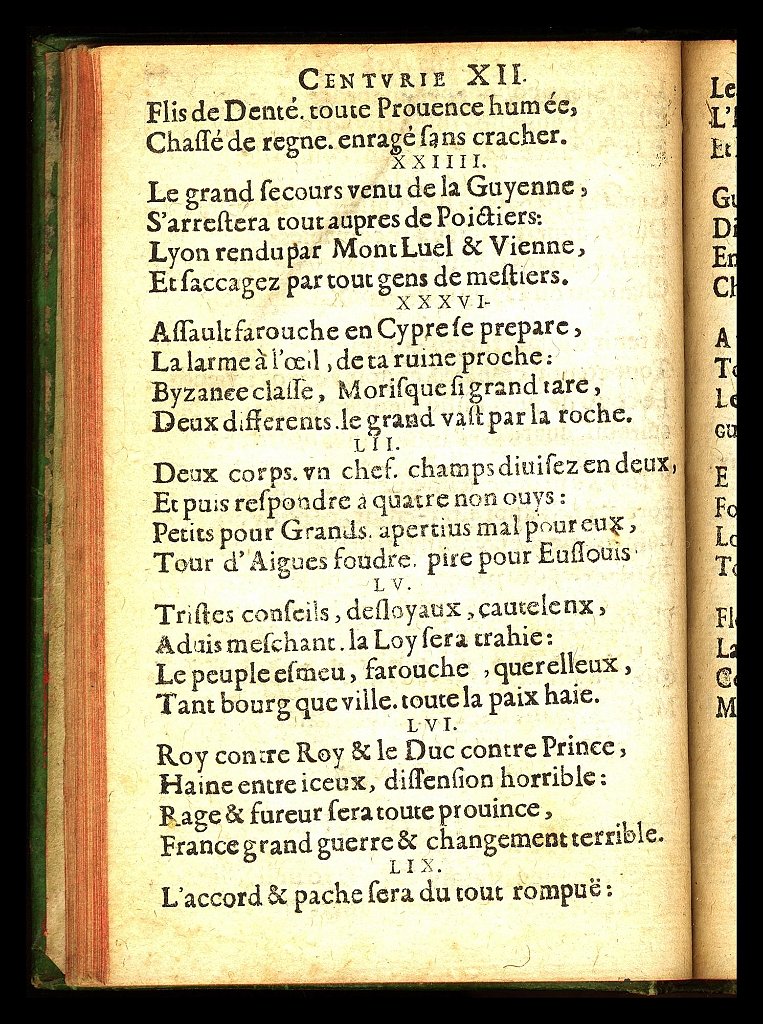 CENTVRIE XII.
Flis de Denté. toute Prouence humée,
Chaſſé de regne. enragé ſans cracher.
XXIIII.
Le grand ſecours venu de la Guyenne,
S'arreſtera tout aupres de Poictiers:
Lyon rendu par Mont Luel & Vienne,
Et ſaccagez par tout gens de meſtiers.
XXXVI-
Aſſault farouche en Cypre ſe prepare,
La larme à l'œil, de ta ruine proche:
Byzance claſſe, Moriſque ſi grand tare,
Deux differents. le grand vaſt par la roche.
LII.
Deux corps. vn chef. champs diuiſez en deux,
Et puis reſpondre à quatre non ouys:
Petits pour Grands. apertius mal pour eux,
Tour d'Aigues foudre. pire pour Euſſouis.
LV.
Triſtes conſeils, deſloyaux, cautelenx,
Aduis meſchant. la Loy ſera trahie:
Le peuple eſmeu, farouche, querelleux,
Tant bourg que ville. toute la paix haie.
LVI.
Roy contre Roy & le Duc contre Prince,
Haine entre iceux, diſſenſion horrible:
Rage & fureur ſera toute prouince,
France grand guerre & changement terrible.
LIX.
L'accord & pache ſera du tout rompuë:
Le
Et
Gu
Di
En
Ch
A
To
Le
gu
E
Fo
Lo
To
Fl
La
Ce
M